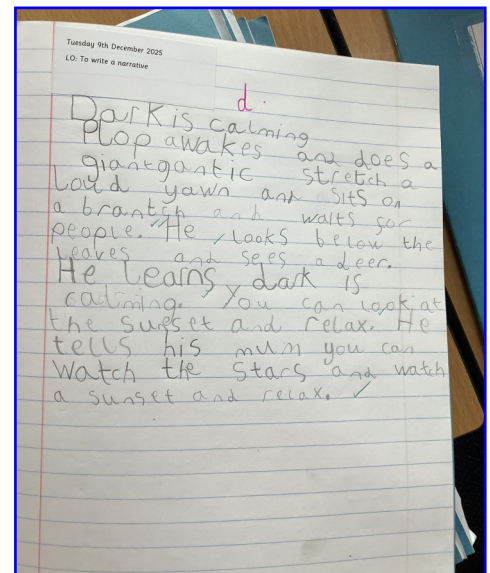 Tuesday 9th December 2025
LO: To write a narrative
d.
Dark is calming
Plop awakes and does a
giantgantic stretch a
Loud yawn and sits on
a brantch and waits for
people. He looks below the
leaves and sees a deer.
He learns dark is
calming. You can look at
the sunset and relax. He
tells his mum you can
watch the stars and watch
a sunset and relax. ✓